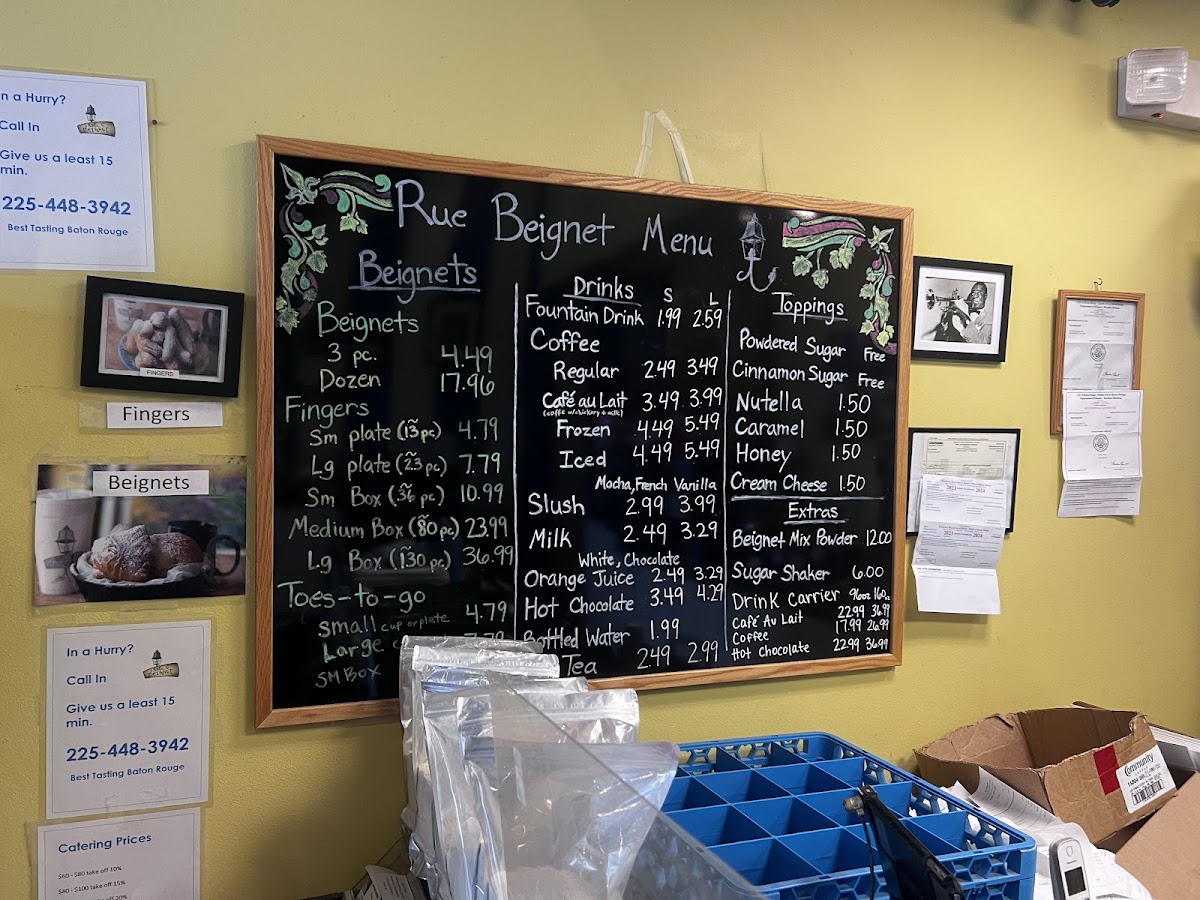 n a Hurry?
Call In
Give us a least 15
min.
225-448-3942
Best Tasting Baton Rouge
FINGERS
Fingers
Beignets
In a Hurry?
Call In
Give us a least 15
min.
225-448-3942
Best Tasting Baton Rouge
Catering Prices
$60 - $80 take off 10%
$80 - $100 take off 15%
Rue Beignet Menu
Beignets
Beignets
3 pc. 4.49
Dozen 17.96
Fingers
Sm plate (~13 pc) 4.79
Lg plate (~23 pc) 7.79
Sm Box (~36 pc) 10.99
Medium Box (~80 pc) 23.99
Lg Box (~130 pc) 36.99
Toes-to-go
small cup or plate 4.79
Large
SM Box
Drinks S L
Fountain Drink 1.99 2.59
Coffee
Regular 2.49 3.49
Café au Lait 3.49 3.99
(coffee w/chickory + milk)
Frozen 4.49 5.49
Iced 4.49 5.49
Mocha, French Vanilla
Slush 2.99 3.99
Milk 2.49 3.29
White, Chocolate
Orange Juice 2.49 3.29
Hot Chocolate 3.49 4.29
Bottled Water 1.99
Tea 2.49 2.99
Toppings
Powdered Sugar Free
Cinnamon Sugar Free
Nutella 1.50
Caramel 1.50
Honey 1.50
Cream Cheese 1.50
Extras
Beignet Mix Powder 12.00
Sugar Shaker 6.00
Drink Carrier 96oz 160oz
Café Au Lait 22.99 36.99
Coffee 17.99 26.99
Hot Chocolate 22.99 36.99
Community